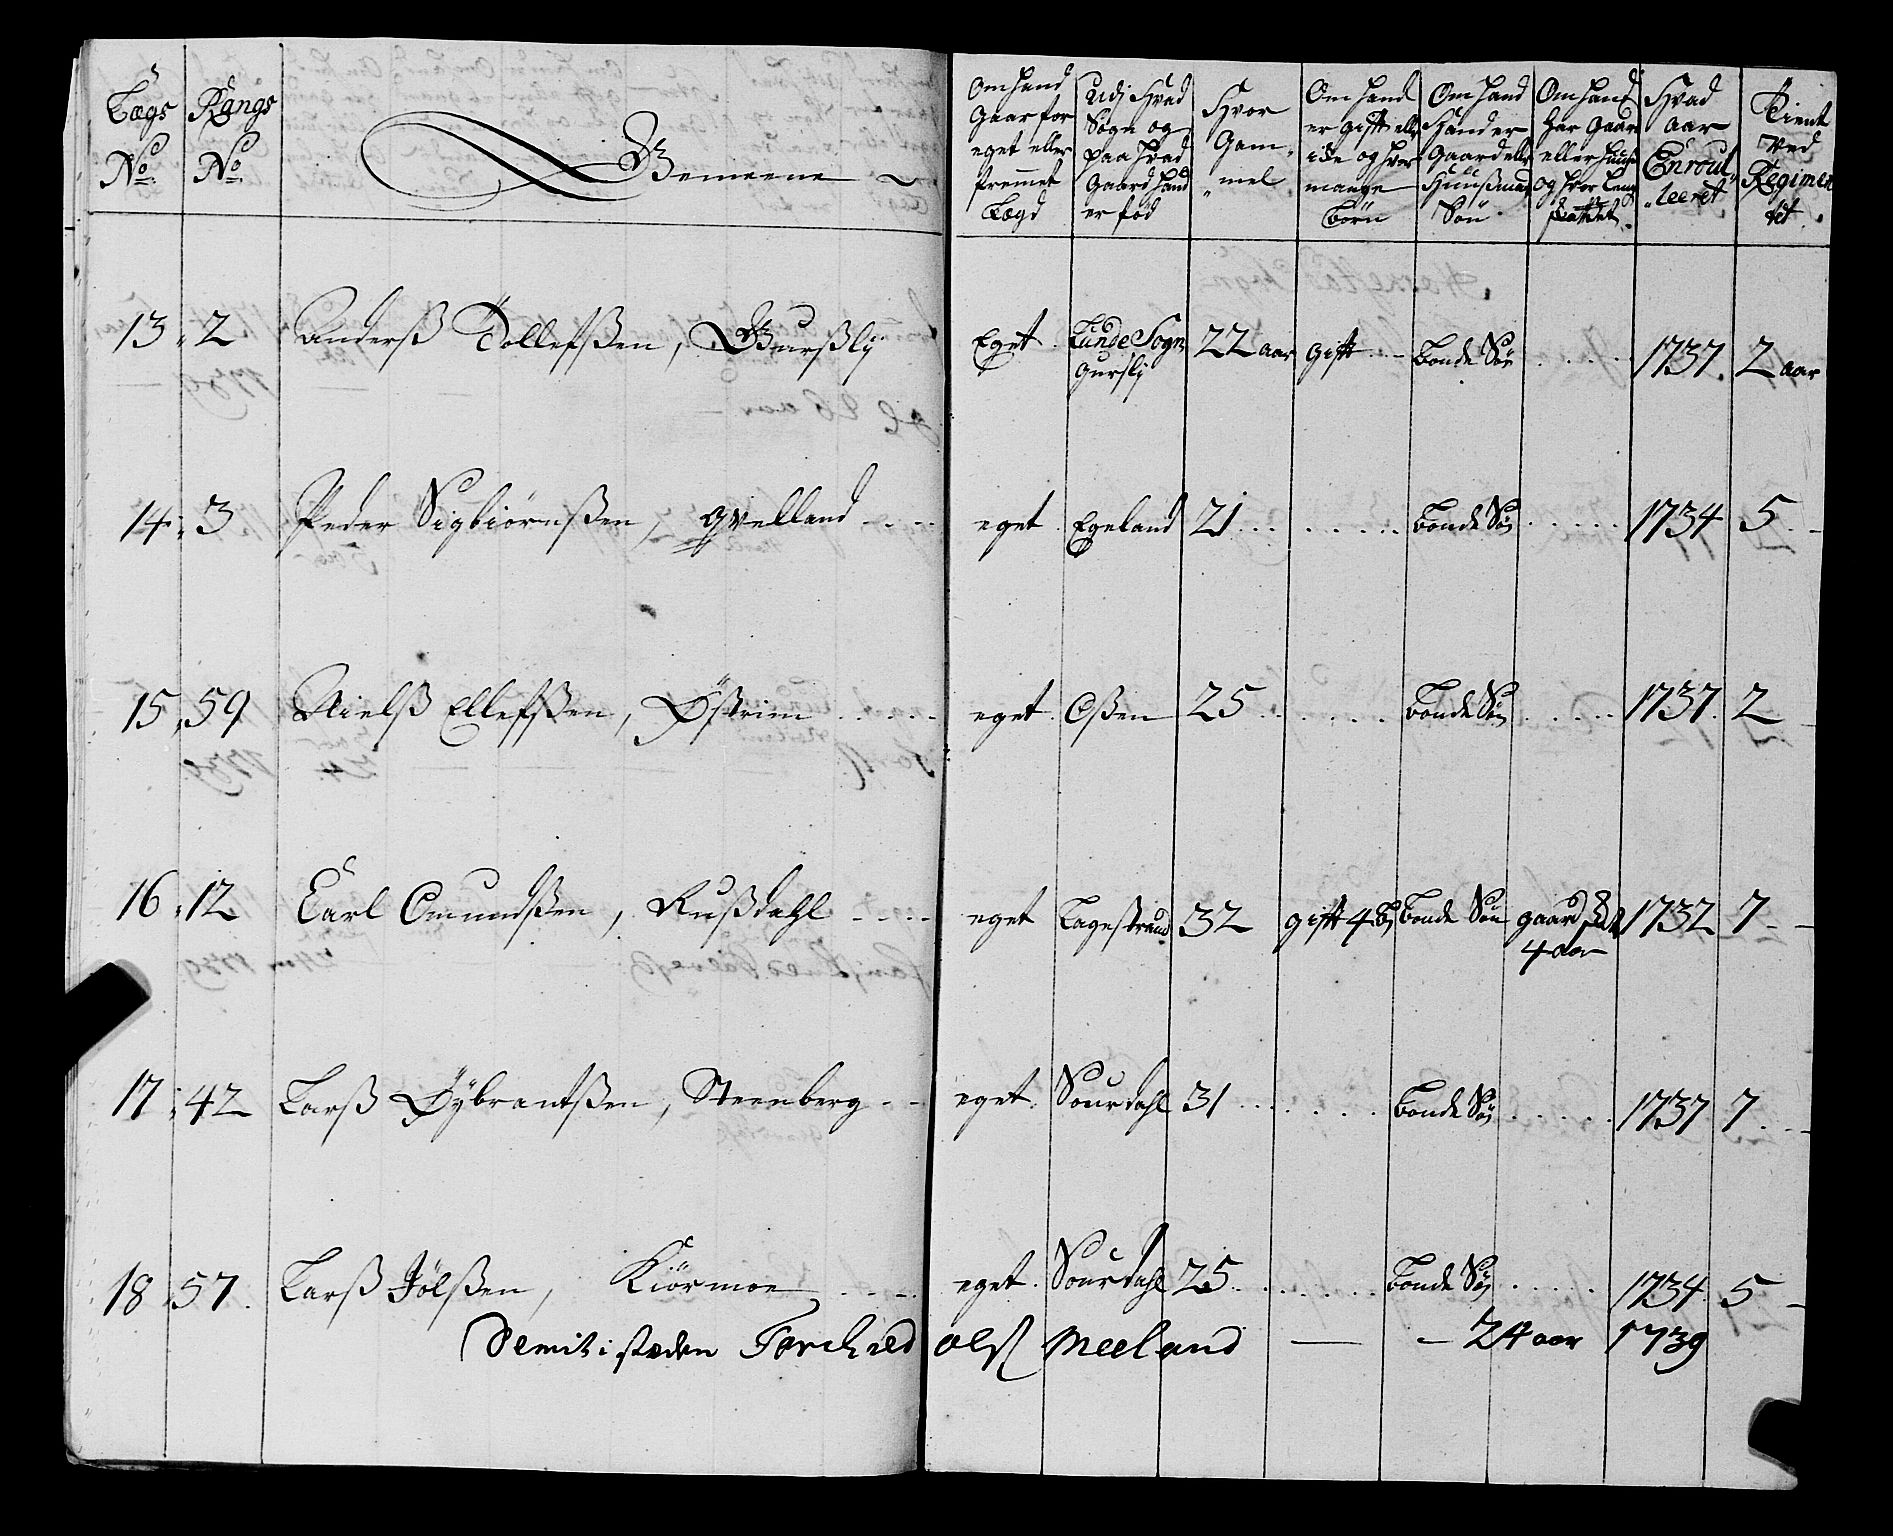 Lægs No. Rangs No. Gemeene Om hand Gaar for eget eller fremmet Lægd Udj Hvad Sogn og paa hvad Gaard hand er fød Hvor Gam-mel Om hand er gift eller ide og hvor mange Børn Om Hand Hand er Gaard eller Huusmand Søn Om hand har Gaard eller Huus og hvor lenge Hvad aar Enroulleeret Tient ved Regimentet
13 2 Anderß Tollefßen, Gurßlij Eget Lunde Sogn Gurslj 22 aar gift Bonde Søn 1737 2 aar
14 3 Peder Sigbiörnßen, Qvelland eget Egeland 21 Bonde Søn 1734 5
15 59 Nielß Ellefßen, Østrim eget Oßen 25 Bonde Søn 1737 2
16 12 Carl Omundßen, Rußdahl eget Lagestrand 32 gift 4 B Bonde Søn gaard 4 aar 1732 7
17 42 Larß Sÿbrantßen, Steenberg eget Sourdahl 31 Bonde Søn 1737 7
18 57 Larß Jölßen, Kiörmoe eget Sourdahl 25 Bonde Søn 1734 5
Demit i steden Torchild Olß Meeland 24 aar 1739